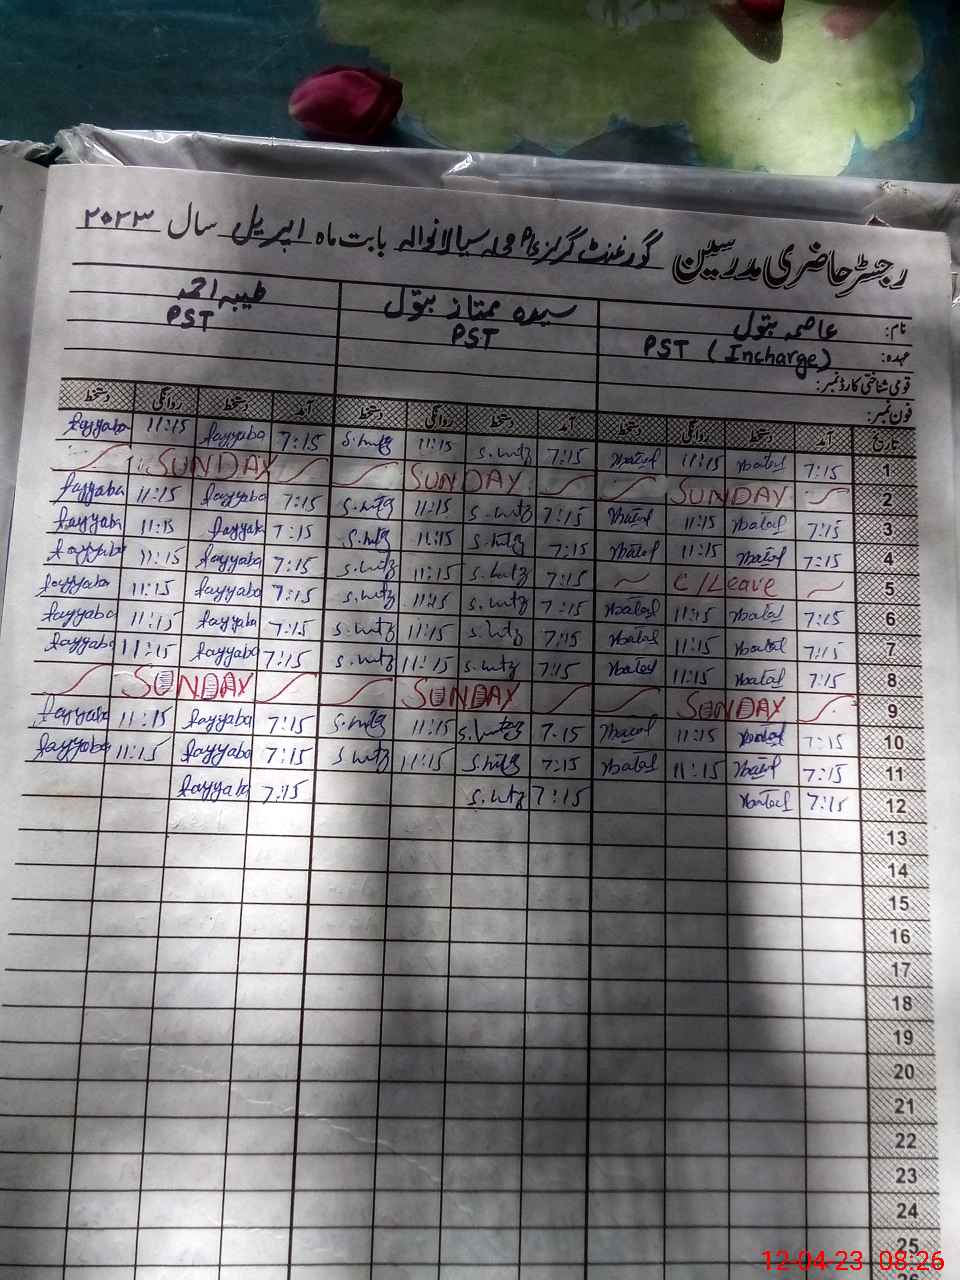 رجسٹر حاضری مدرسین گورنمنٹ گرلز سیالانوالہ بابت ماہ اپریل سال ۲۰۲۳
نام: عاصمہ بتول سیدہ ممتاز بتول طیبہ احمد
عہدہ: PST (Incharge) PST PST
قومی شناختی کارڈ نمبر:
فون نمبر:
تاریخ آمد دستخط روانگی دستخط آمد دستخط روانگی دستخط آمد دستخط روانگی دستخط
1 7:15 11:15 7:15 S.mtz 11:15 S.mtz 7:15 Tayyaba 11:15 Tayyaba
2 SUNDAY SUNDAY SUNDAY
3 7:15 11:15 7:15 S.mtz 11:15 S.mtz 7:15 Tayyaba 11:15 Tayyaba
4 7:15 11:15 7:15 S.mtz 11:15 S.mtz 7:15 Tayyaba 11:15 Tayyaba
5 C/Leave 7:15 S.mtz 11:15 S.mtz 7:15 Tayyaba 11:15 Tayyaba
6 7:15 11:15 7:15 S.mtz 11:15 S.mtz 7:15 Tayyaba 11:15 Tayyaba
7 7:15 11:15 7:15 S.mtz 11:15 S.mtz 7:15 Tayyaba 11:15 Tayyaba
8 7:15 11:15 7:15 S.mtz 11:15 S.mtz 7:15 Tayyaba 11:15 Tayyaba
9 SUNDAY SUNDAY SUNDAY
10 7:15 11:15 7:15 S.mtz 11:15 S.mtz 7:15 Tayyaba 11:15 Tayyaba
11 7:15 11:15 7:15 S.mtz 11:15 S.mtz 7:15 Tayyaba 11:15 Tayyaba
12 7:15 7:15 S.mtz 7:15 Tayyaba
13
14
15
16
17
18
19
20
21
22
23
24
25
12-04-23 08:26